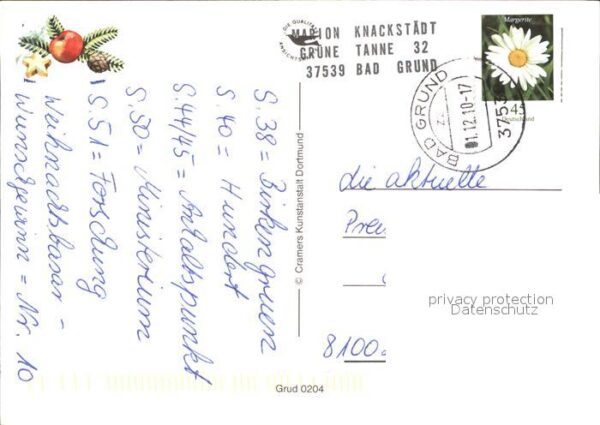 MARION KNACKSTÄDT
GRÜNE TANNE 32
37539 BAD GRUND
DIE QUALITÄTS
Margerite
45
Deutschland
BAD GRUND
1.12.10-17
37539
S. 38 = Birkengruen
S. 40 = Hundert
S. 44/45 = Anhaltspunkt
S. 50 = Ministerium
S. 51 = Forschung
Weihnachtsbasar -
Wunschgewinn = Nr. 10
© Cramers Kunstanstalt Dortmund
die aktuelle
Prei
8100
privacy protection
Datenschutz
Grud 0204